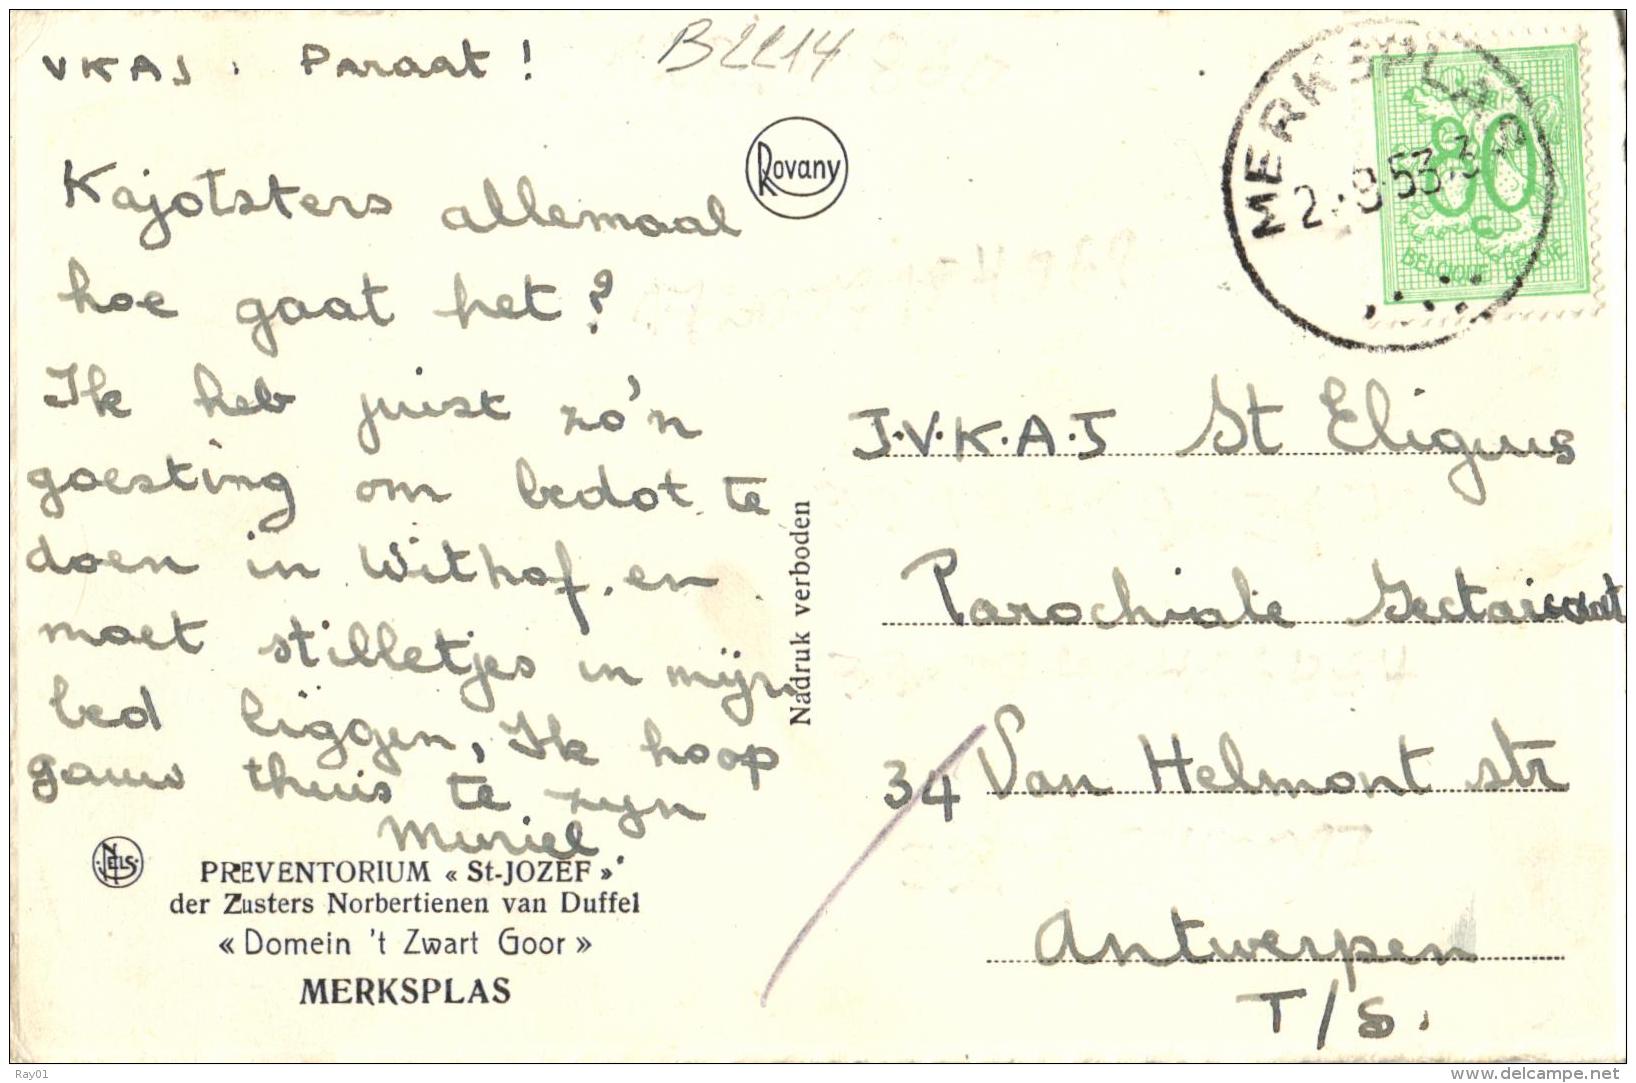 VKAJ. Paraat!
B2214
Kajotsters allemaal
hoe gaat het?
Ik heb juist zo'n
goesting om bedot te
doen in Withof, en
moet stilletjes in mijn
bed liggen, Ik hoop
gauw thuis te zijn
Muriel
NELS
PREVENTORIUM « St-JOZEF »
der Zusters Norbertienen van Duffel
« Domein 't Zwart Goor »
MERKSPLAS
Rovany
Nadruk verboden
MERKSPLAS
2.-9.53.3
80
BELGIQUE BELGIE
J.V.K.A.J St Eligius
Parochiale
34 Van Helmont str
Antwerpen
T/S.
Ray01
www.delcampe.net